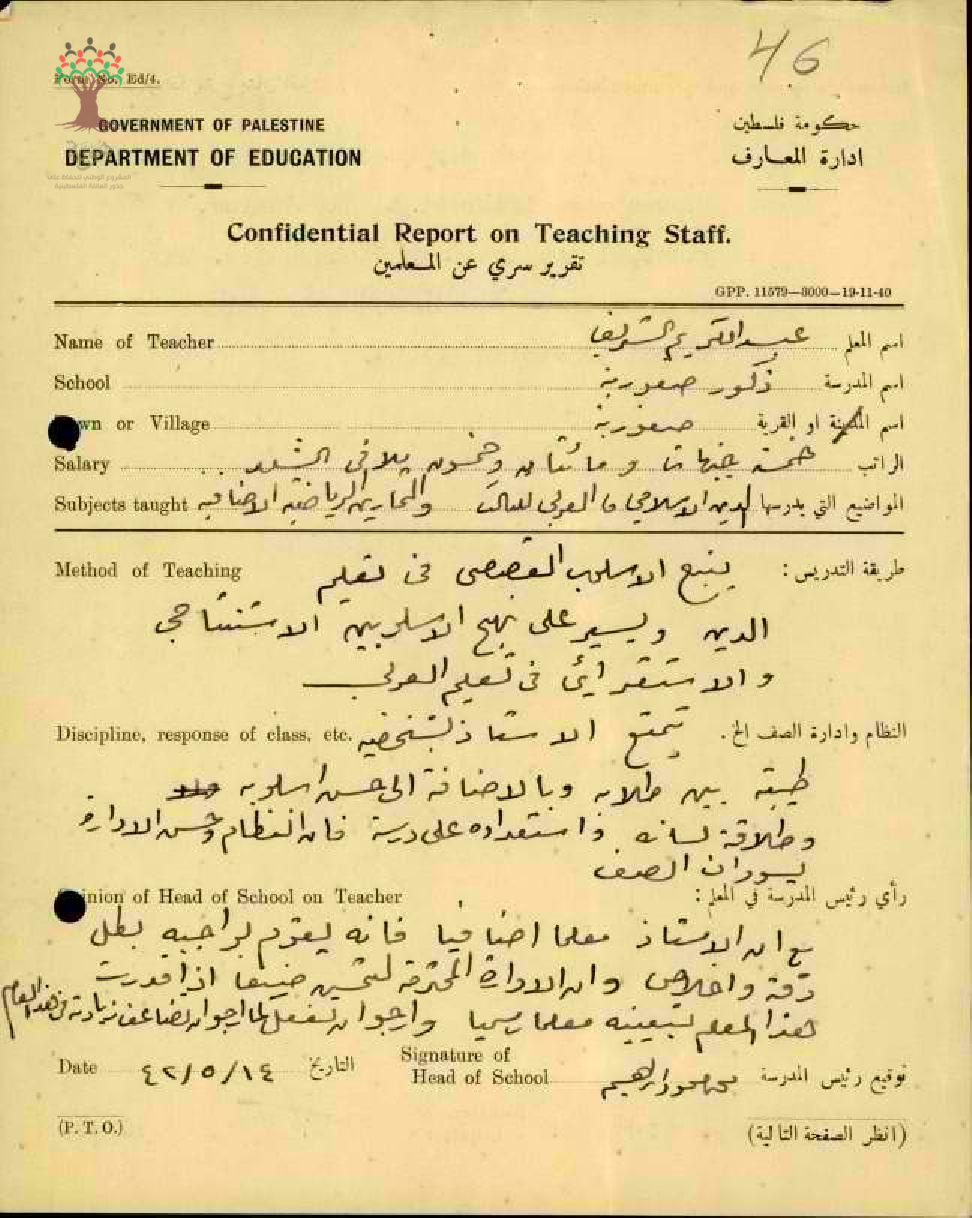 46
Form No. Ed/4.
GOVERNMENT OF PALESTINE
DEPARTMENT OF EDUCATION
حكومة فلسطين
ادارة المعارف
Confidential Report on Teaching Staff.
تقرير سري عن المعلمين
GPP. 11579—8000—19-11-40
Name of Teacher عبد الكريم الشريف اسم المعلم
School ذكور صفورية اسم المدرسة
Town or Village صفورية اسم المدينة او القرية
Salary خمسة جنيهات و مائتان وخمسون ملا في الشهر الراتب
Subjects taught الدين الاسلامي والعربي للثالث والتمارين الرياضية الاضافية المواضيع التي يدرسها
Method of Teaching يتبع الاسلوب القصصي في تعليم طريقة التدريس :
الدين ويسير على نهج الاسلوبين الاستنتاجي
والاستقرائي في تعليم العربي
Discipline, response of class, etc. يتمتع الاستاذ بشخصية النظام وادارة الصف الخ.
طيبة بين طلابه وبالاضافة الى حسن اسلوبه
وطلاقة لسانه واستعداده على درسة فان النظام وحسن الادارة
يسودان الصف
Opinion of Head of School on Teacher رأي رئيس المدرسة في المعلم :
مع ان الاستاذ معلما اضافيا فانه يقوم بواجبه بكل
دقة واخلاص وان الادارة المحترمة لتحسن صنيعا اذا قدرت
هذا المعلم بتعيينه معلما رسميا وارجو ان تفعل كما ارجو ان تضاعف زيادته في هذا العام
Date ٤٢/٥/١٤ التاريخ Signature of Head of School محمد محمود ابراهيم توقيع رئيس المدرسة
(P. T. O.) (انظر الصفحة التالية)